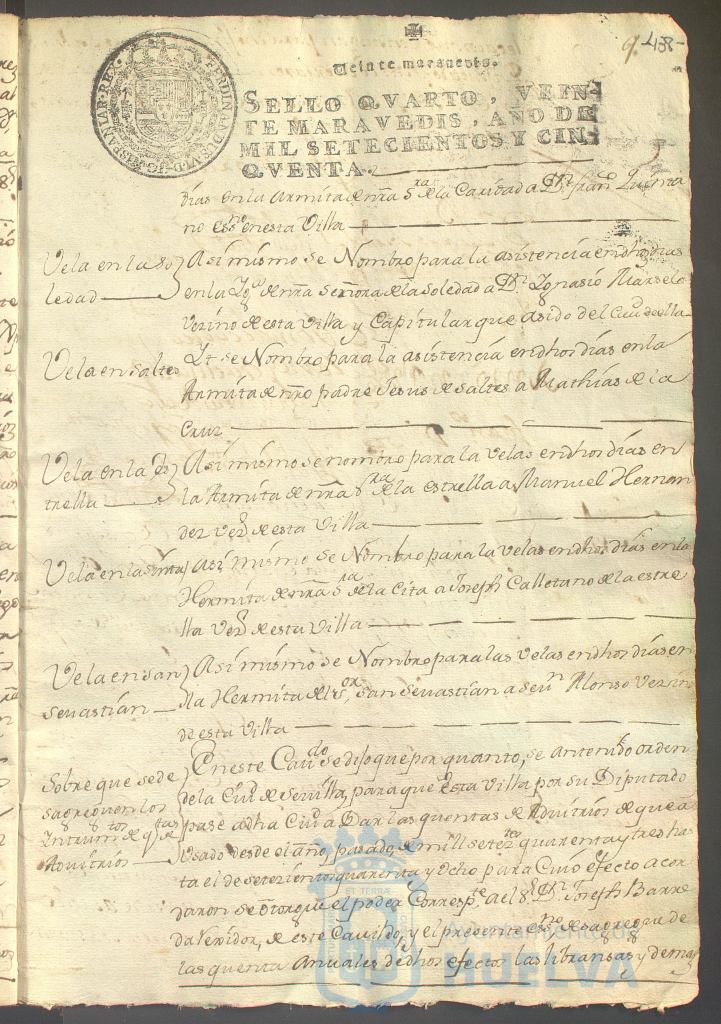 9. 458
Veinte maravedis.
FERDINANDUS VI D. G. HISPANIAR. REX.
SELLO QVARTO, VEIN-
TE MARAVEDIS, AÑO DE
MIL SETECIENTOS Y CIN-
QVENTA.
días en la Armita de nra Sra de la Caridad a Dn fran Quinta
no Essno en esta Villa
Vela en la So
ledad
Asi mismo se Nombro para la asistencia en dhos dias
en la Yga de nra Señora de la Soledad a Dn Ygnasio Marselo
Vezino de esta Villa y Capitular que a sido del Cauo de ella
Vela en Saltes
Yt se Nombro para la asistencia en dhos días en la
Armita de nro padre Jesus de Saltes a Mathias de la
Cruz
Vela en la Es
trella
Asi mismo se nombro para la Velas en dhos días en
la Armita de nra Sra de la estrella a Manuel Hernan
dez Vezo de esta Villa
Vela en la Sinta
Asi mismo se Nombro para la Velas en dhos días en la
Hermita de nra Sra de la Cita a Joseph Calletano de la estre
lla Vezo de esta Villa
Vela en San
Sevastián
Asi mismo se Nombro para las Velas en dhos días en
la Hermita del Sor San Sevastian a Seun Alonso Vezino
de esta Villa
Sobre que se de
sagreguen los
de qtas de
Advitrios
En este Caudo se dijo que por quanto, se a tenido orden
de la Ciud de Sevilla, para que esta Villa por su Diputado
pase a dha Ciud a Dar las quentas de Advitrios de que a
Usado desde el año, pasado, de mill setezos quarenta y tres has
ta el de setezientos quarenta y Ocho para Cuio efecto acor
daron se otorgue el poder Correspte al Sr Dn Joseph Barre
da Vexidor, de este Cavildo, y el presente Essno de sagregue
las quentas Anuales de dhos efectos las libransas y demas
HUELVA